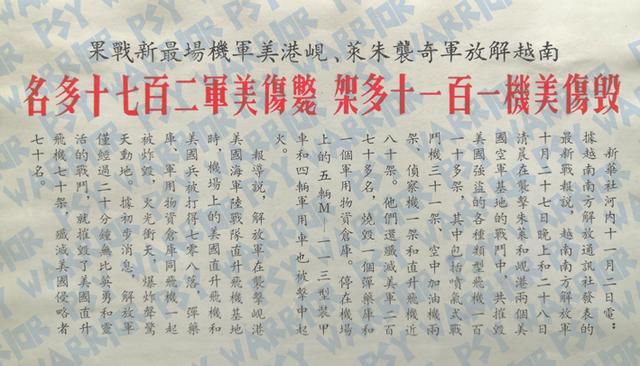 南越解放軍奇襲朱萊、峴港美軍機場最新戰果
毀傷美機一百一十多架 斃傷美軍二百七十多名
新華社河內十一月二日電：
據越南南方解放通訊社發表的
最新戰報說，越南南方解放軍
十月二十七日晚上和二十八日
清晨在襲擊朱萊和峴港兩個美
國空軍基地的戰鬥中，共摧毀
美國強盜的各種類型飛機一百
一十多架，其中包括噴氣式戰
鬥機三十一架、空中加油機兩
架、偵察機一架和直升飛機近
八十架。他們還殲滅美軍二百
七十多名，燒毀一個彈藥庫和
一個軍用物資倉庫。停在機場
上的五輛M—一一三型裝甲
車和四輛軍用車也被擊中起
火。
報導說，解放軍在襲擊峴港
美國海軍陸戰隊直升飛機基地
時，機場上的美國直升飛機和
美國兵被打得七零八落，彈藥
庫、軍用物資倉庫同飛機一起
被炸毀，火光衝天，爆炸聲驚
天動地。據初步消息，解放軍
僅經過二十分鐘無比英勇和靈
活的戰鬥，就摧毀了美國直升
飛機七十架，殲滅美國侵略者
七十名。
PSY WARRIOR